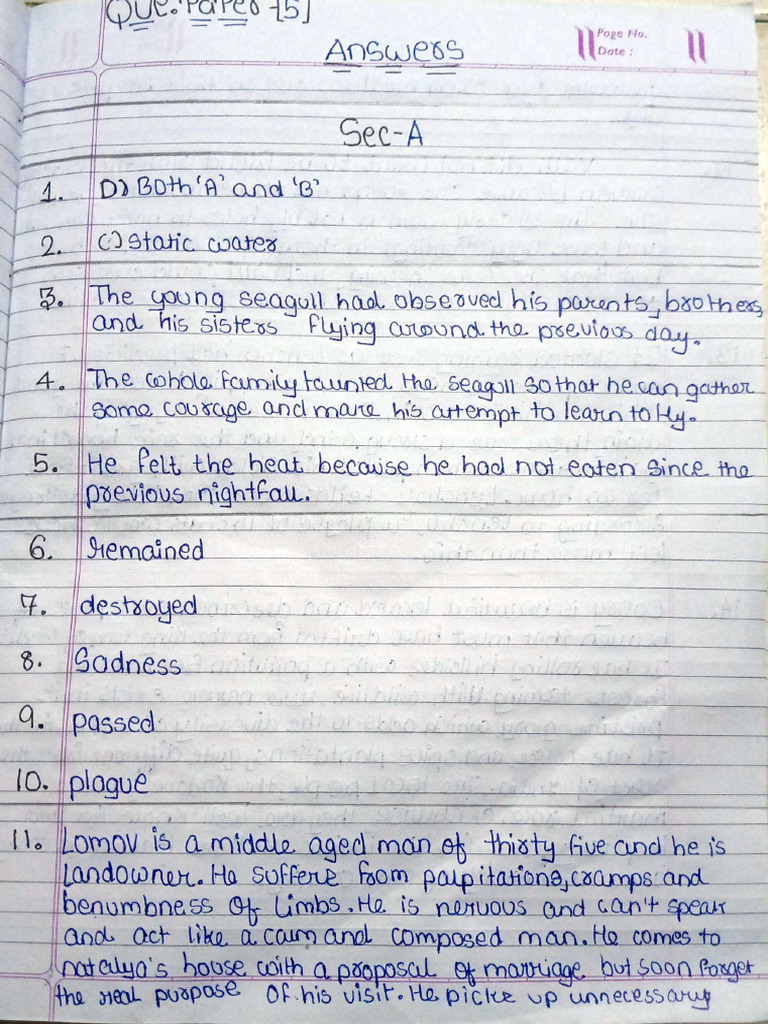 Que. Paper-[5]
Page No.
Answers
Date :
Sec-A
1. D) Both 'A' and 'B'
2. (c) static water
3. The young seagull had observed his parents, brothers,
and his sisters flying around the previous day.
4. The whole family taunted the seagull so that he can gather
some courage and make his attempt to learn to fly.
5. He felt the heat because he had not eaten since the
previous nightfall.
6. remained
7. destroyed
8. Sadness
9. passed
10. plague
11. Lomov is a middle aged man of thirty five and he is
landowner. He suffere from palpitations, cramps and
benumbness of limbs. He is nervous and can't speak
and act like a calm and composed man. He comes to
natalya's house with a proposal of marriage but soon forget
the real purpose of his visit. He picks up unnecessary